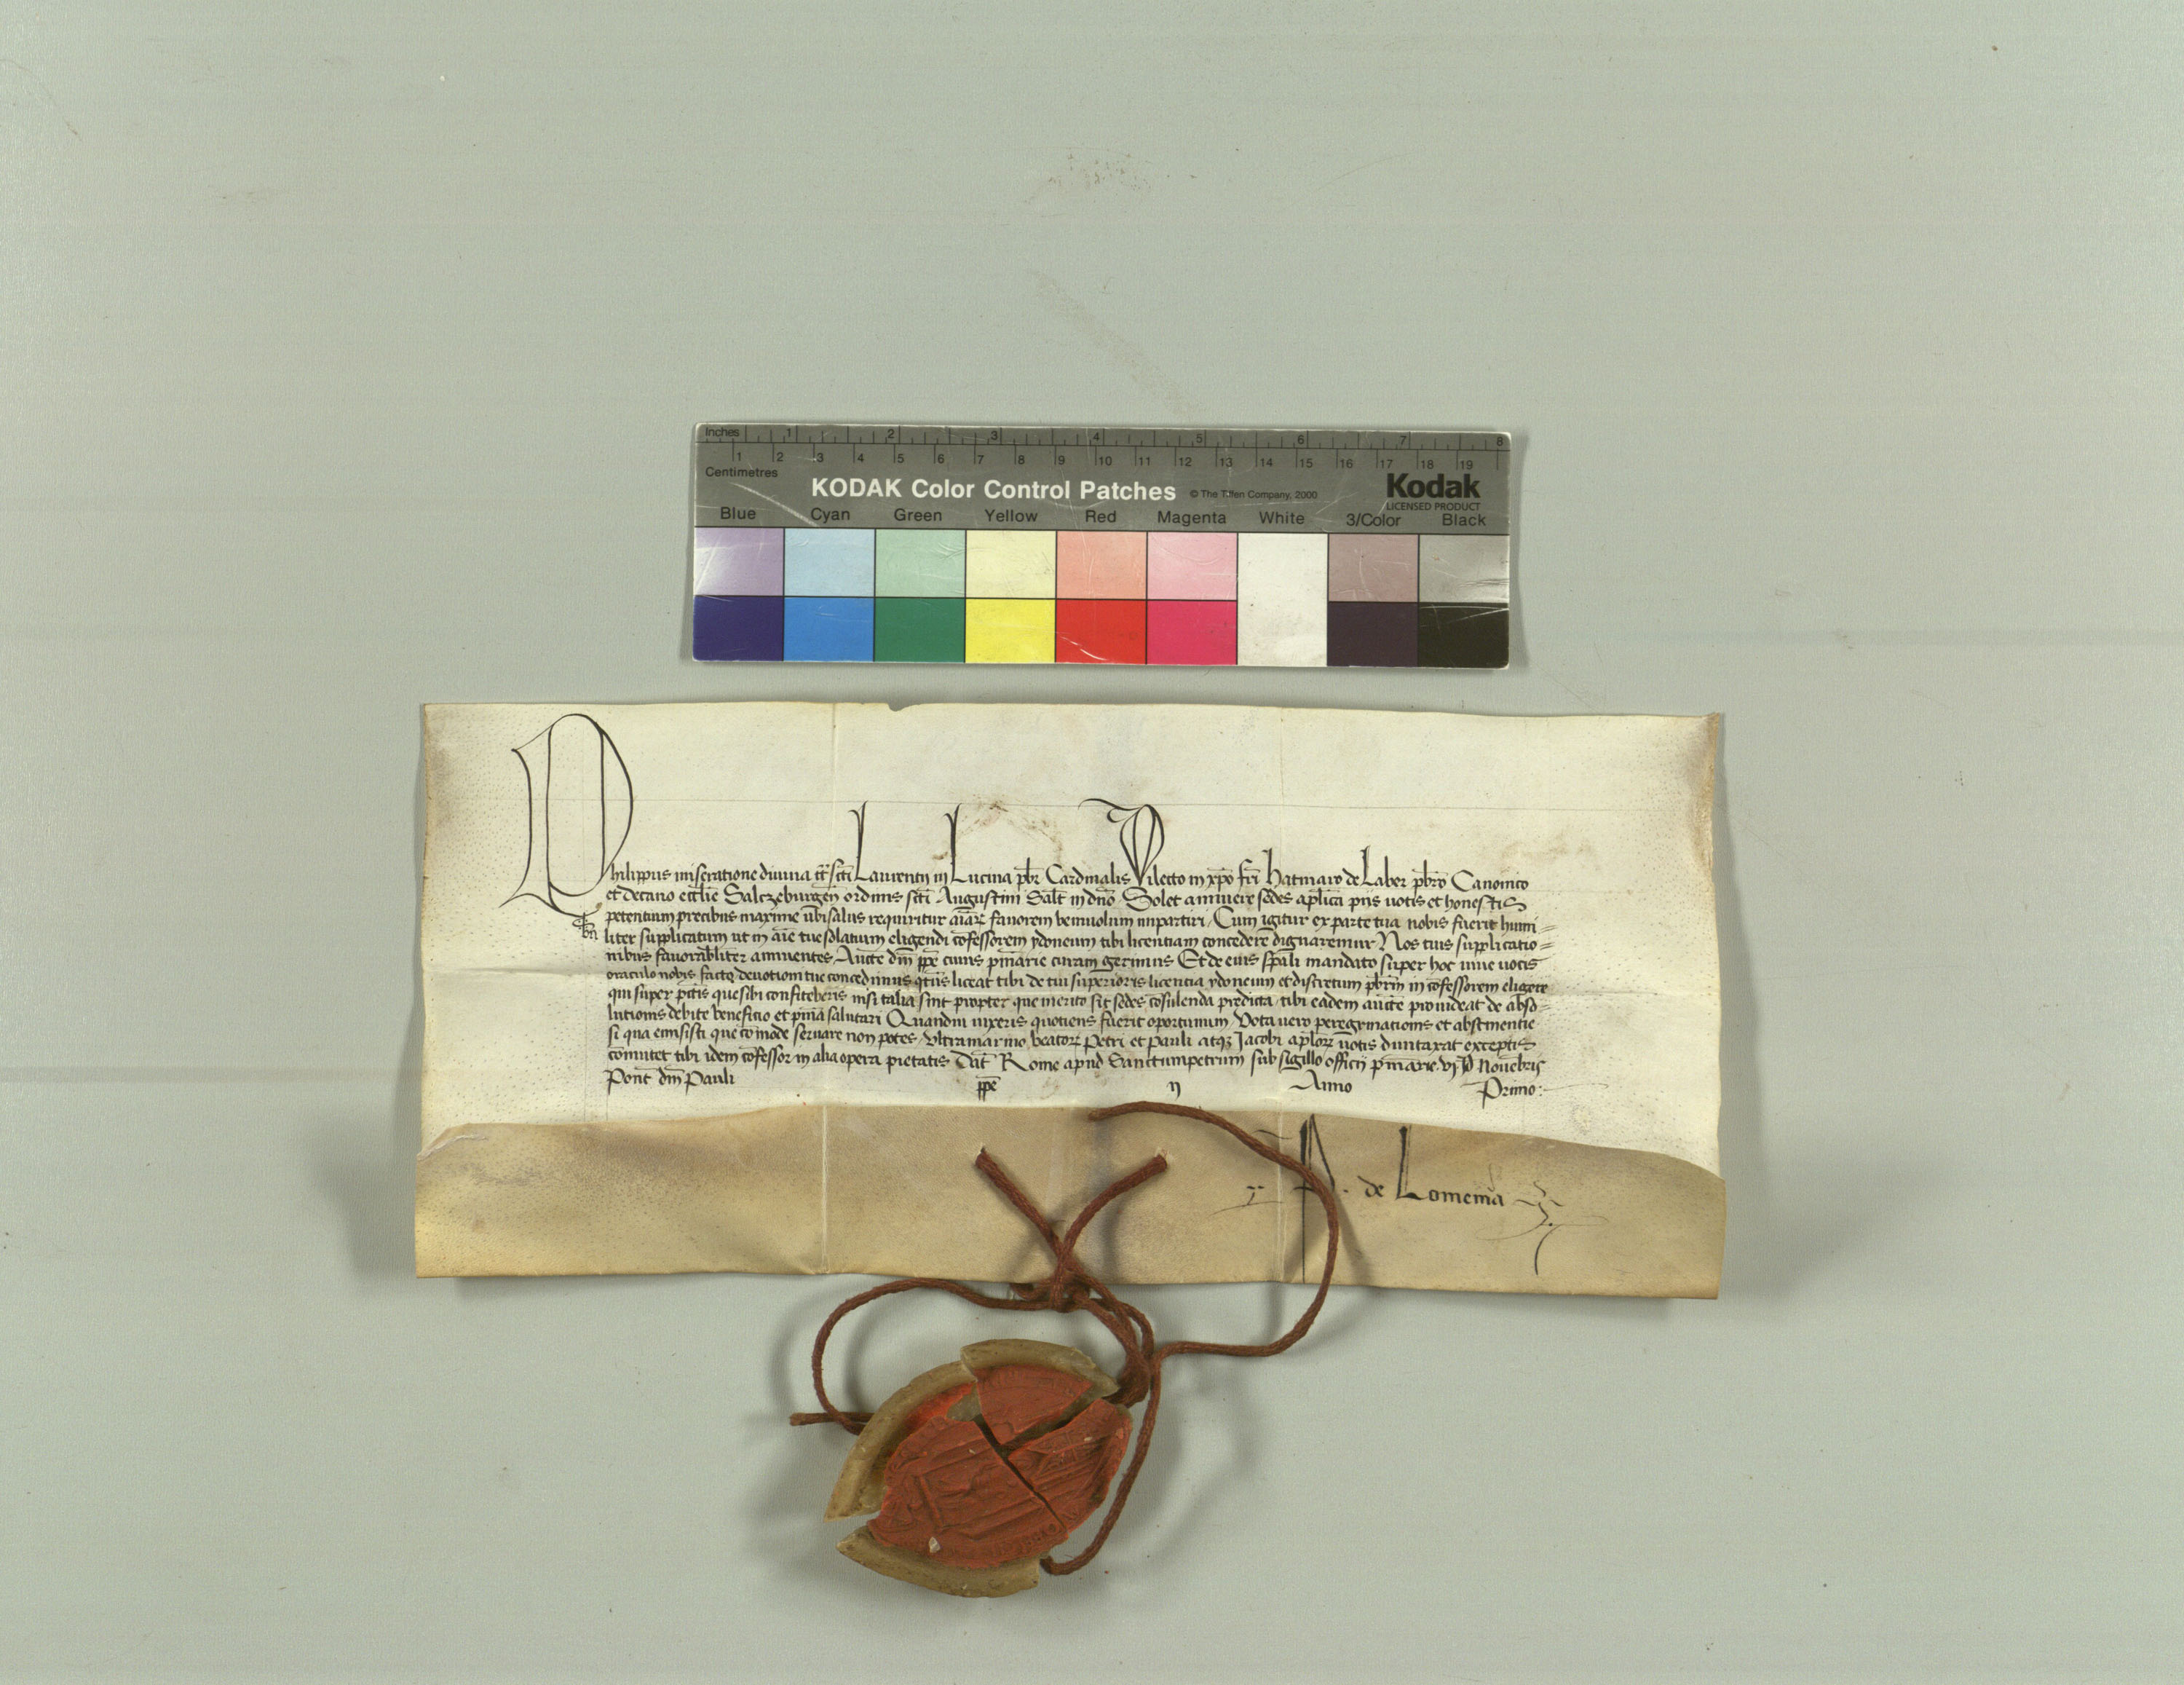 Inches 1 2 3 4 5 6 7 8
1 2 3 4 5 6 7 8 9 10 11 12 13 14 15 16 17 18 19
Centimetres
KODAK Color Control Patches © The Tiffen Company, 2000 Kodak
LICENSED PRODUCT
Blue Cyan Green Yellow Red Magenta White 3/Color Black
Philippus miseratione divina tt scti Laurentij in Lucina pbr Cardinalis Dilecto in xpo fri hatmaro de Laber pbro Canonico
et decano ecclie Salczeburgen ordinis scti Augustini Salt in dno. Solet annuere sedes aplica pijs uotis et honestis
petentium precibus maxime ubi salus requiritur aiar fauorem beniuolum impartiri. Cum igitur ex parte tua nobis fuerit humi=
liter supplicatum ut in aie tue solatium eligendi cofessorem ydoneum tibi licentiam concedere dignaremur Nos tuis supplicatio=
nibus fauorabliter annuentes Aucte dni ppe cuius pmarie curam gerimus Et de eius spali mandato super hoc uiue uocis
oraculo nobis facto deuotioni tue concedimus qtus liceat tibi de tui superioris licentia ydoneum et discretum pbrm in cofessorem eligere
qui super pctis que sibi confiteberis nisi talia sint propter que merito sit sedes cosulenda predicta tibi eadem aucte prouideat de abso=
lutionis debite beneficio et pnia salutari Quamdiu uixeris quotiens fuerit oportunum Vota uero peregrinationis et abstinentie
si qua emisisti que comode seruare non potes Vltramarino beator Petri et Pauli atq Jacobi aplor uotis duntaxat exceptis
comutet tibi idem cofessor in alia opera pietatis Dat Rome apud Sanctumpetrum sub sigillo officij pmarie vj D Nouebris
Pont dni Pauli ppe ij Anno Primo:
de Lomenia